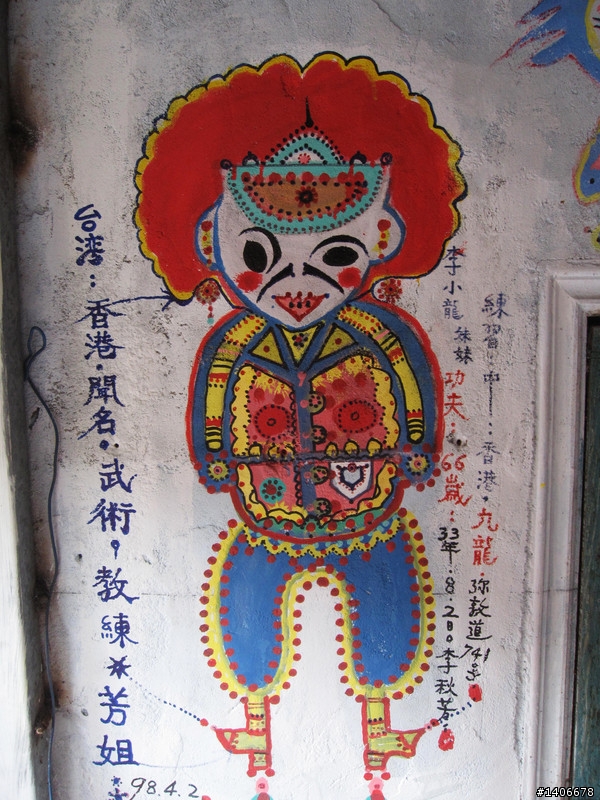 台湾：香港．聞名．武術，教練＊芳姐
98.4.2
李小龍 妹妹 功夫：66歲：33年.8.2日。李秋芳
練習中：香港，九龍．弥敦道741号
#1406678